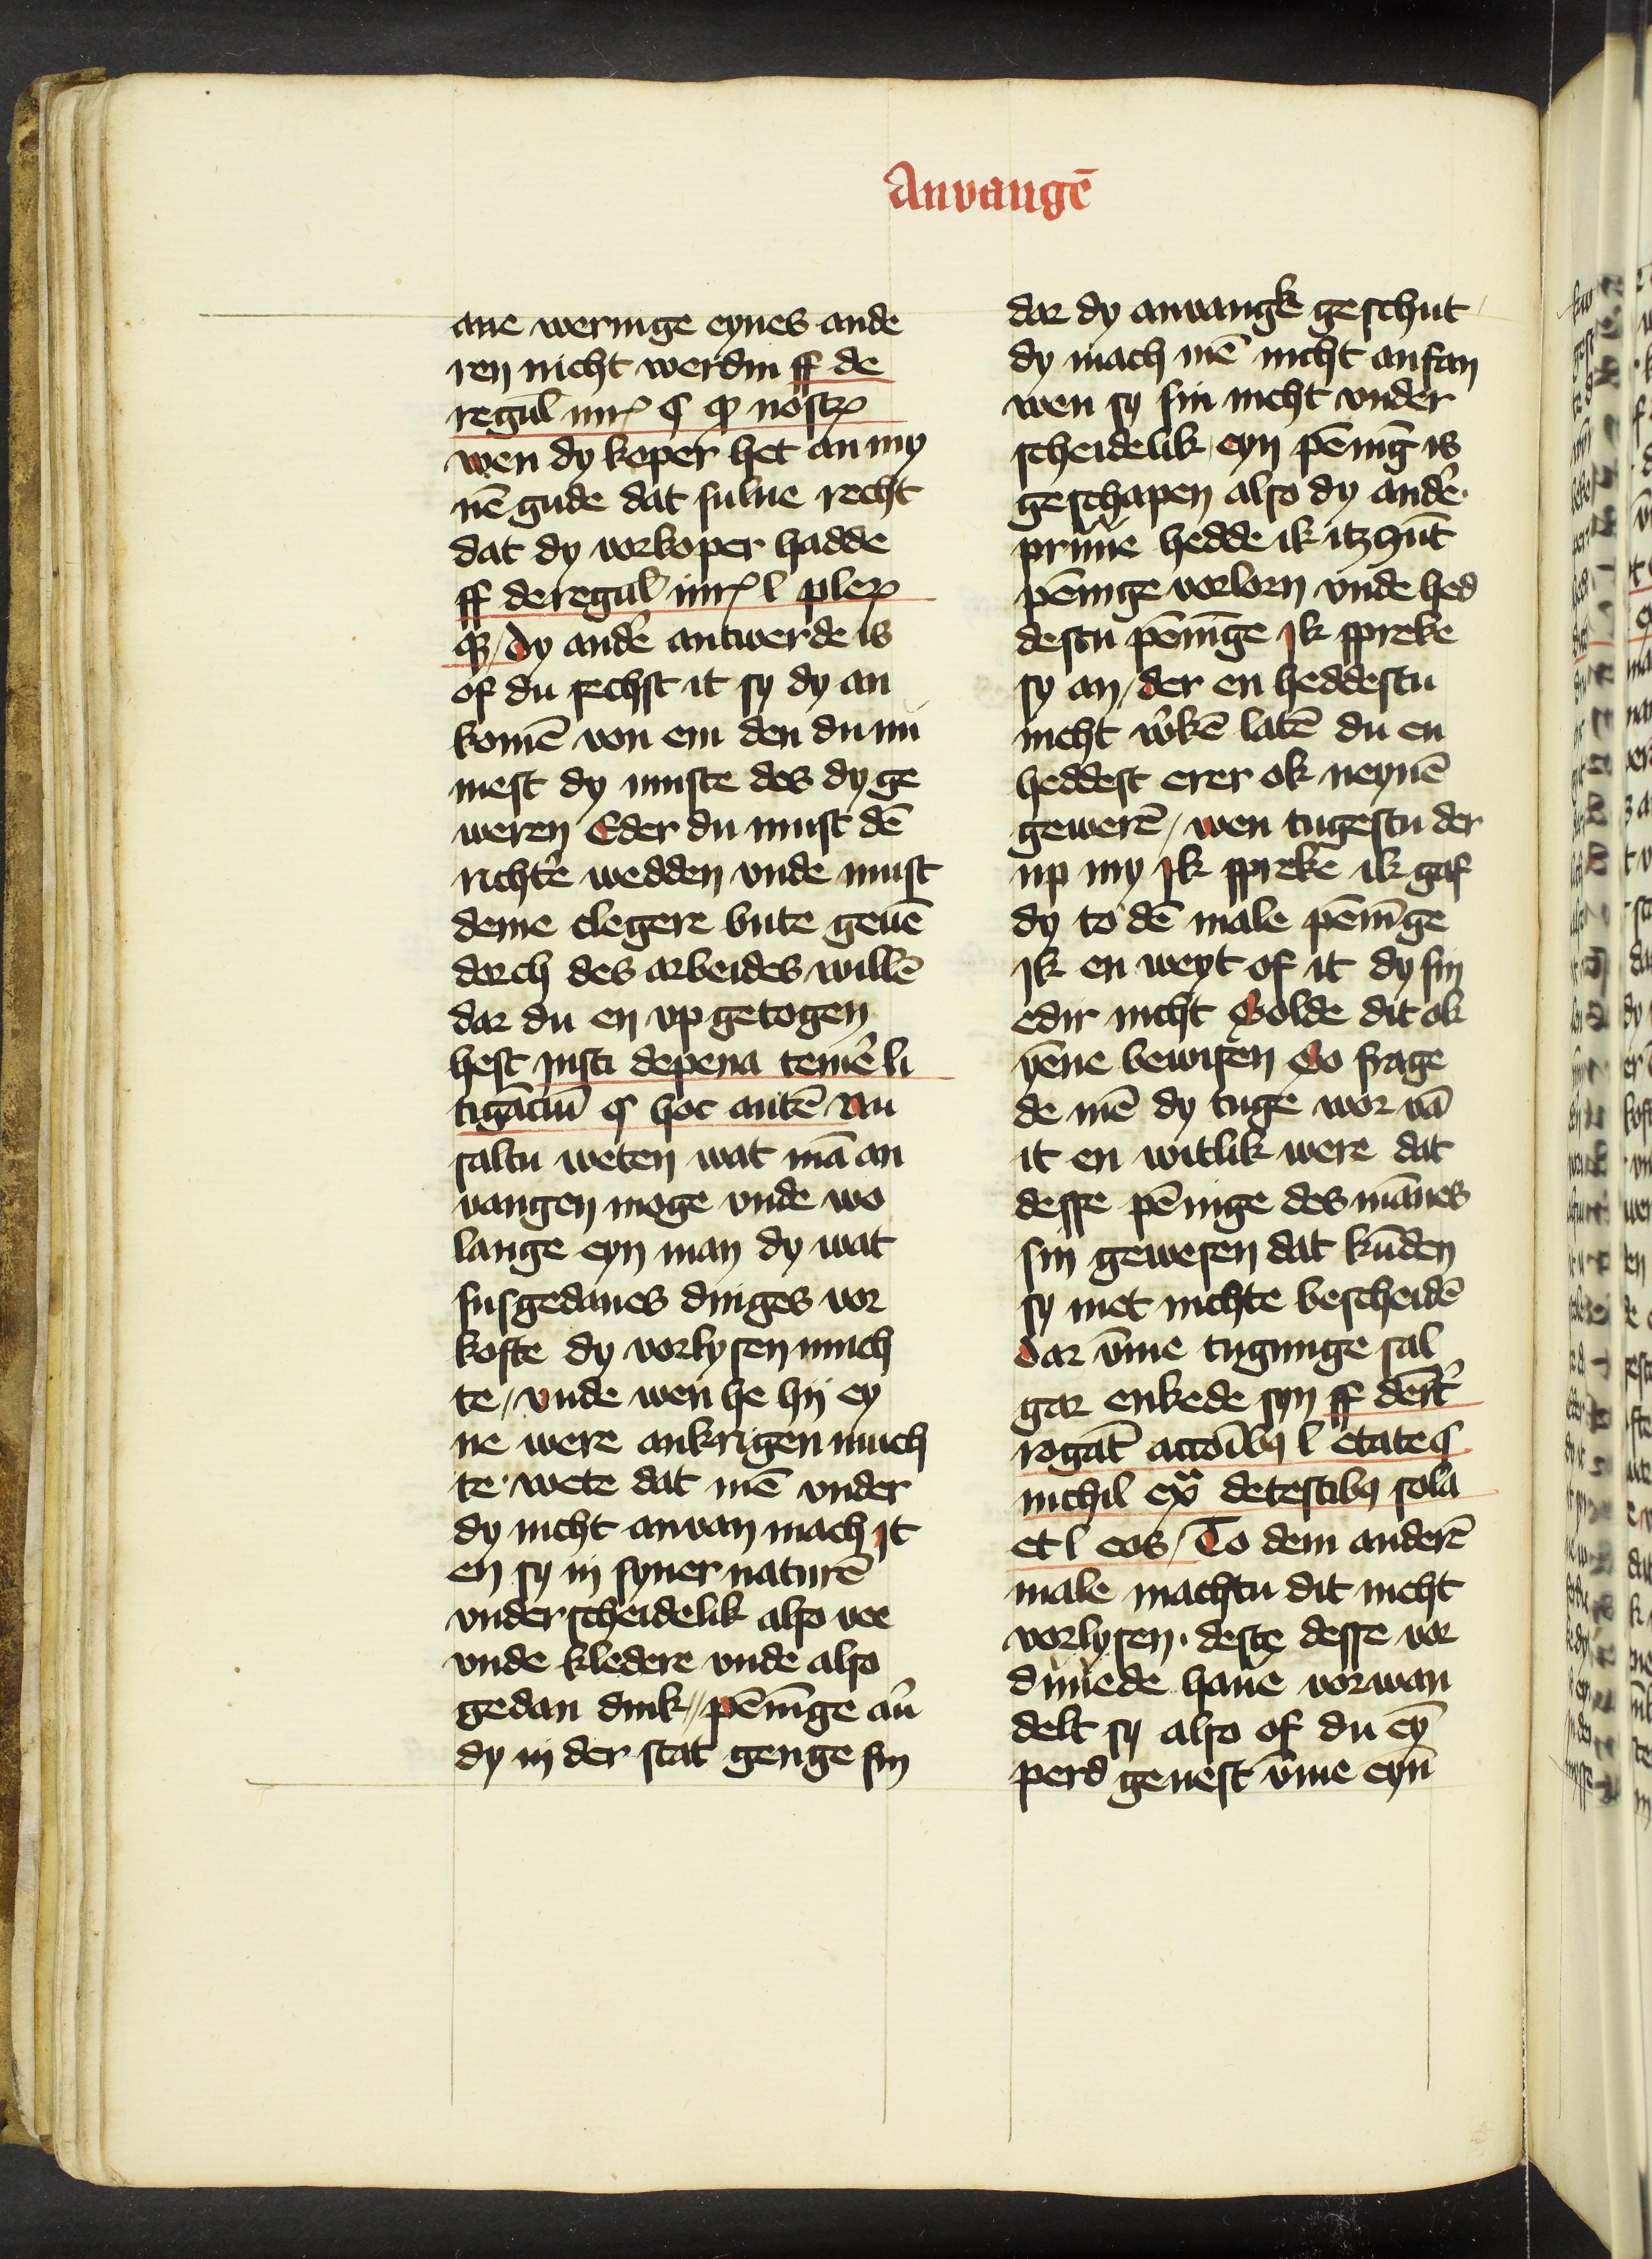 Anvangē
ane weringe eynes ande
ren nicht werdin ff de
regul̄ iur̄ § qd nostrꝫ
wen dy koper het an my
nē gude dat sulue recht
dat dy vorkoper hadde
ff de regul̄ iur̄ l plerꝫ
qꝫ / Dy andē antwerde is
of du sechst it sy dy an
komē von em den du ni
mest dy muste des dy ge
weren Eder du must dē
richt'e wedden vnde must
deme clegere bute geuē
dorch des arbeides willē
dar du en vp getogen
hest Insti depena temē li
tigāciū § hoc autē Nu
saltu weten wat mā an
vangen moge vnde wo
lange eyn man dy wat
susgedanes dinges vor
kofte dy vorlysen much
te / vnde wen he hij ey
ne were ankrigen much
te · wete dat mē vnder
dy nicht anvan mach It
en sy in syner naturē
vnderscheidelik also vee
vnde kledere vnde also
gedan dink // pēnīge au̅
dy in der stat genge sin
dar dy anvangk geschut
dy mach mē nicht anfan
wen sy sin nicht vnder
scheidelik eyn pēning is
geschapen also dy ande'·
hedde ik itzhūt
pēninge vorlorn vnde hed
destu pēnīge Ik spreke
sy an / der en heddestu
nicht w'kē latē du en
heddest erer ok neynē
gewerē / wen tugestu der
up my Ik spreke ik gaf
dy to dē male pēnīge
Ik en weyt of it dy sin
edir nicht Solde dit ok
yēne bewisen So frage
de mē dy tuge wor vā
it en witlik were dat
desse pēninge des mānes
sin gewesen dat kūden
sy met nichte bescheidē
Dar v̄me tuginge sal
gar enkede syn ff de īt'
rogāt' actoīb9 l etate §
nichil exͣ de testib9 sola
et l eos / To dem anderē
male machtu dit nicht
vorlysen · deste desse vor
haue vorwan
delt sy also of du eȳ
perd geuest v̄me eyn